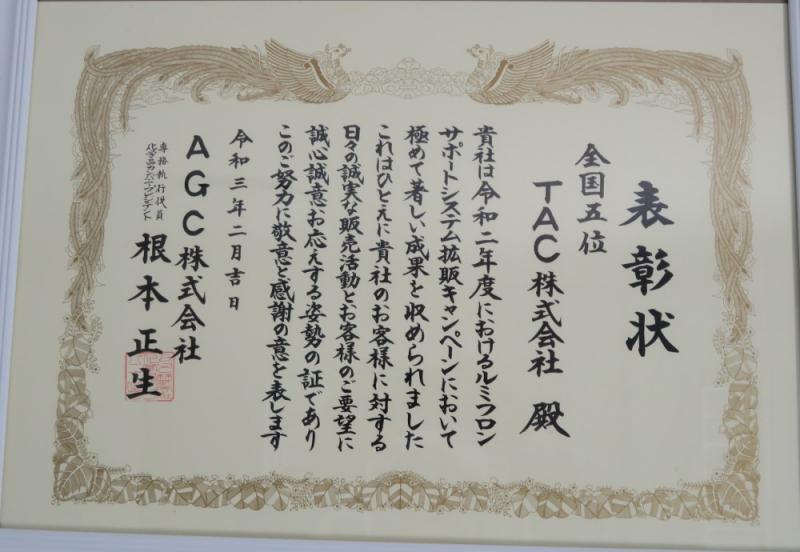 表彰状
全国五位
TAC株式会社 殿
貴社は令和二年度におけるルミフロン
サポートシステム拡販キャンペーンにおいて
極めて著しい成果を収められました
これはひとえに貴社のお客様に対する
日々の誠実な販売活動とお客様のご要望に
誠心誠意お応えする姿勢の証であり
このご努力に敬意と感謝の意を表します
令和三年二月吉日
AGC株式会社
専務執行役員
化学品カンパニープレジデント
根本正生